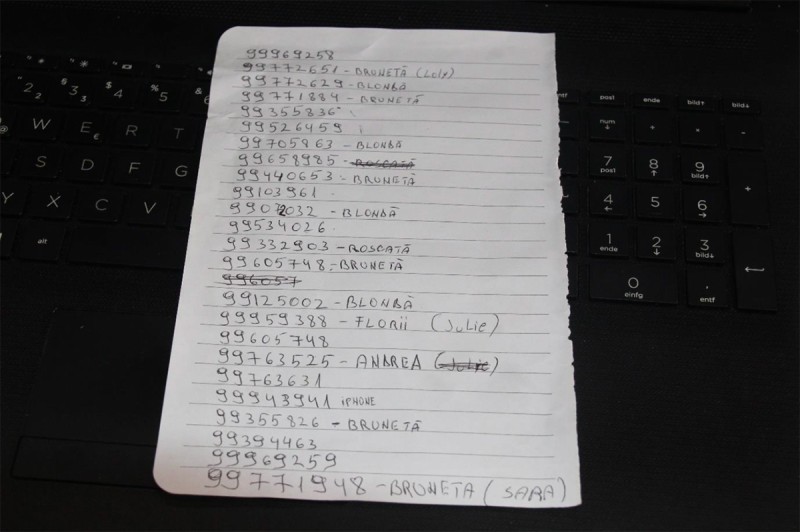 99969258
99772651 - BRUNETĂ (Loly)
99772629 - BLONBĂ
99771884 - BRUNETĂ
99355836
99526459
99705863 - BLONBĂ
99658985 - ROSCATĂ
99440653 - BRUNETĂ
99103961
99032032 - BLONBĂ
99534026
99332903 - ROSCATĂ
99605748 - BRUNETĂ
996057
99125002 - BLONBĂ
99959388 - FLORII (JULIE)
99605748
99763525 - ANDREA (JULIE)
99763631
99943941 iPHONE
99355826 - BRUNETĂ
99394463
99969259
99771948 - BRUNETA (SARA)
2 3 § 4 $ 5 %
W E € R T
S D F G
Y X C V
alt
entf post ende bild↑ bild↓
num
7 post 8 9 bild↑ +
4 5 6
1 ende 2 3 bild↓
0 einfg , entf